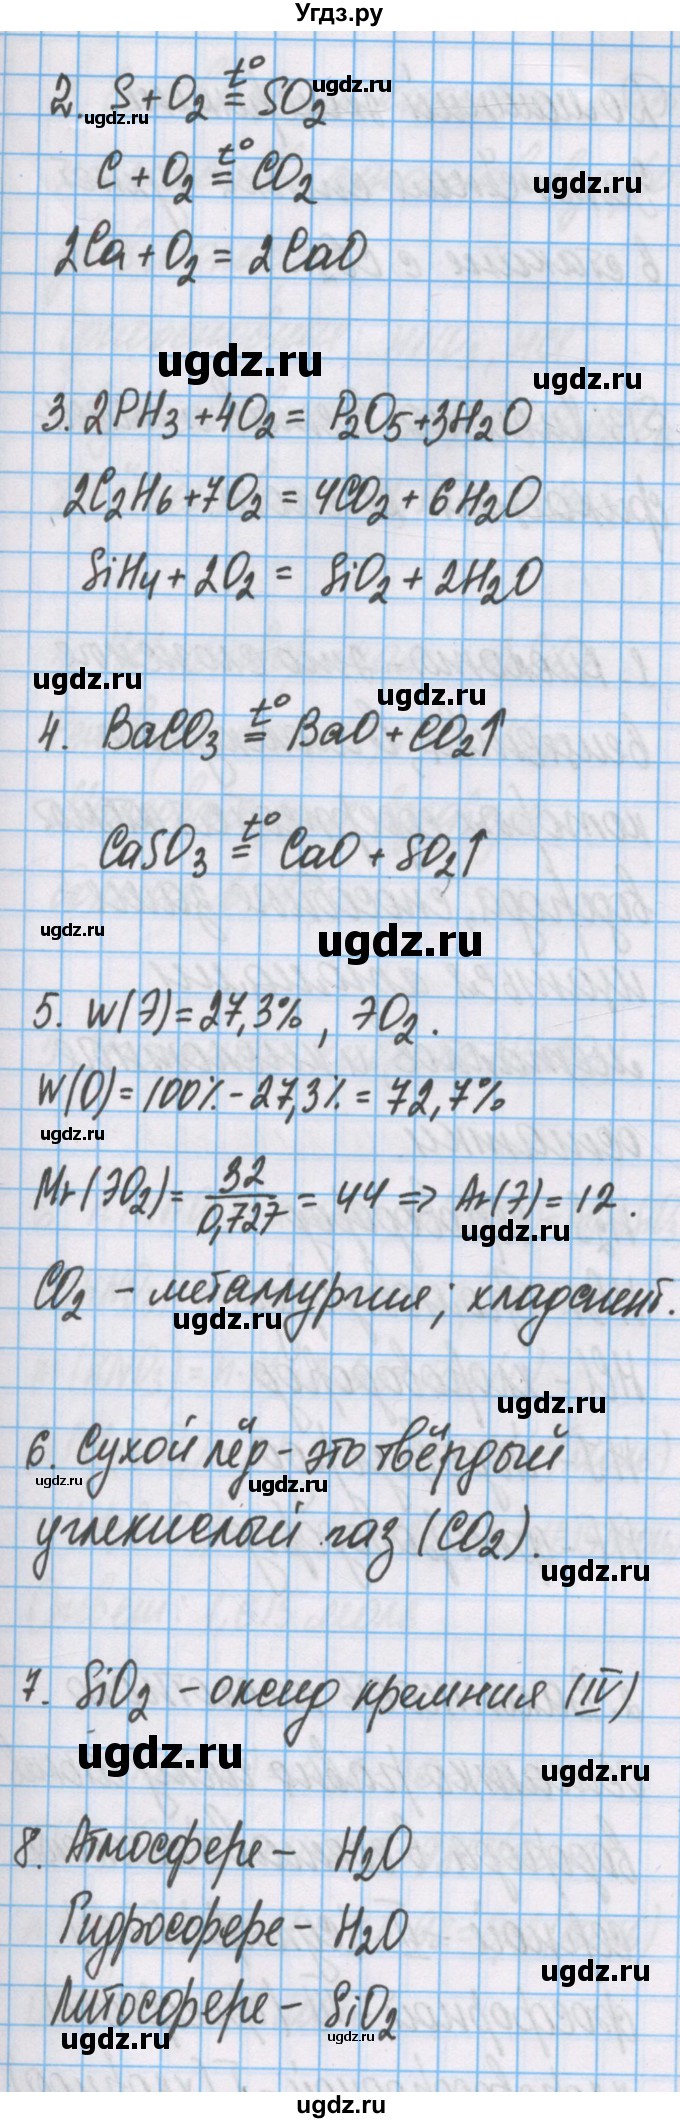 Угдз.ру
2. S + O₂ t° = SO₂
ugdz.ru
ugdz.ru
C + O₂ t° = CO₂
ugdz.ru
2Ca + O₂ = 2CaO
ugdz.ru
ugdz.ru
3. 2PH₃ + 4O₂ = P₂O₅ + 3H₂O
2C₂H₆ + 7O₂ = 4CO₂ + 6H₂O
SiH₄ + 2O₂ = SiO₂ + 2H₂O
ugdz.ru
ugdz.ru
4. BaCO₃ t° = BaO + CO₂↑
CaSO₃ t° = CaO + SO₂↑
ugdz.ru
ugdz.ru
5. W(Э) = 27,3%, ЭO₂.
W(O) = 100% - 27,3% = 72,7%
ugdz.ru
Mr(ЭO₂) = 32/0,727 = 44 => Ar(Э) = 12.
ugdz.ru
CO₂ - металлургия; хладагент.
ugdz.ru
ugdz.ru
6. Сухой лёд - это твёрдый
ugdz.ru
ugdz.ru
углекислый газ (CO₂).
ugdz.ru
7. SiO₂ - оксид кремния (IV)
ugdz.ru
ugdz.ru
8. Атмосфере - H₂O
Гидросфере - H₂O
ugdz.ru
Литосфере - SiO₂
ugdz.ru
ugdz.ru
ugdz.ru